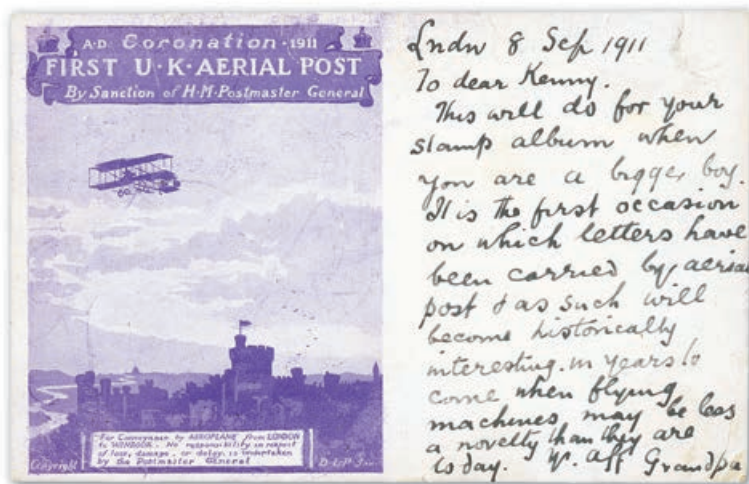 A·D Coronation·1911
FIRST U·K·AERIAL POST
By Sanction of H·M·Postmaster General
For Conveyance by AEROPLANE from LONDON
to WINDSOR. No responsibility in respect
of loss, damage, or delay, is undertaken
by the Postmaster General
Copyright
Lndn 8 Sep 1911
To dear Kenny.
This will do for your
stamp album when
you are a bigger boy.
It is the first occasion
on which letters have
been carried by aerial
post & as such will
become historically
interesting in years to
come when flying
machines may be less
a novelty than they are
today. Yr. aff Grandpa